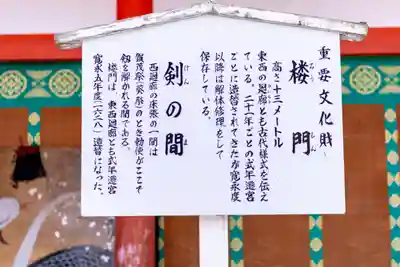 重要文化財
楼門
ろう もん
高さ十三メートル
東西の廻廊とも古代様式を伝え
ている。二十一年ごとの式年遷宮
ごとに造替されてきたが寛永度
以降は解体修理をして
保存している。
剣の間
けん ま
西廻廊の床張の一間は
賀茂祭(葵祭)のとき勅使がここで
剣を解かれる間である。
楼門は、東西廻廊とも式年遷宮
寛永五年度(一六二八)造替になった。